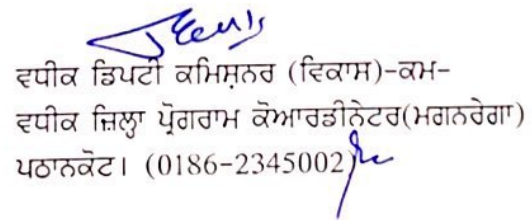 ਵਧੀਕ ਡਿਪਟੀ ਕਮਿਸ਼ਨਰ (ਵਿਕਾਸ)-ਕਮ-
ਵਧੀਕ ਜ਼ਿਲ੍ਹਾ ਪ੍ਰੋਗਰਾਮ ਕੋਆਰਡੀਨੇਟਰ(ਮਗਨਰੇਗਾ)
ਪਠਾਨਕੋਟ। (0186-2345002)